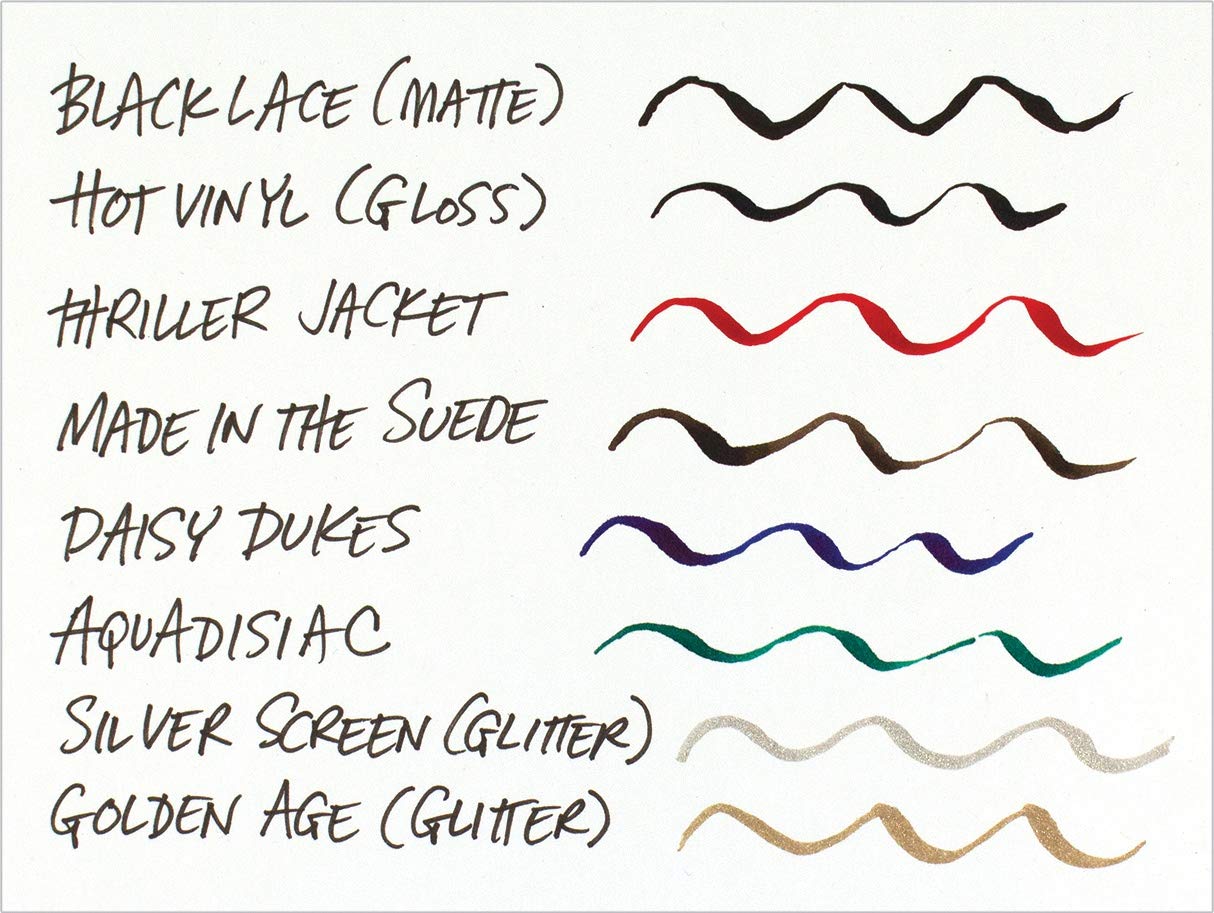 BLACK LACE (MATTE)
HOT VINYL (GLOSS)
THRILLER JACKET
MADE IN THE SUEDE
DAISY DUKES
AQUADISIAC
SILVER SCREEN (GLITTER)
GOLDEN AGE (GLITTER)